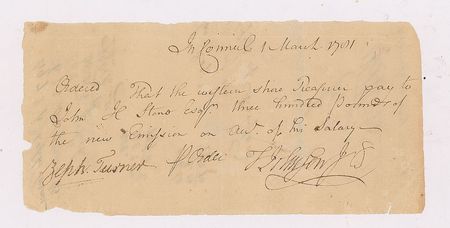 In Council 1 March 1781
Ordered That the western shore Treasurer pay to
John H Stone Esqr three hundred Pounds of
the new Emission on Acct. of his Salary
Zeph. Turner p Order T Johnson Jr